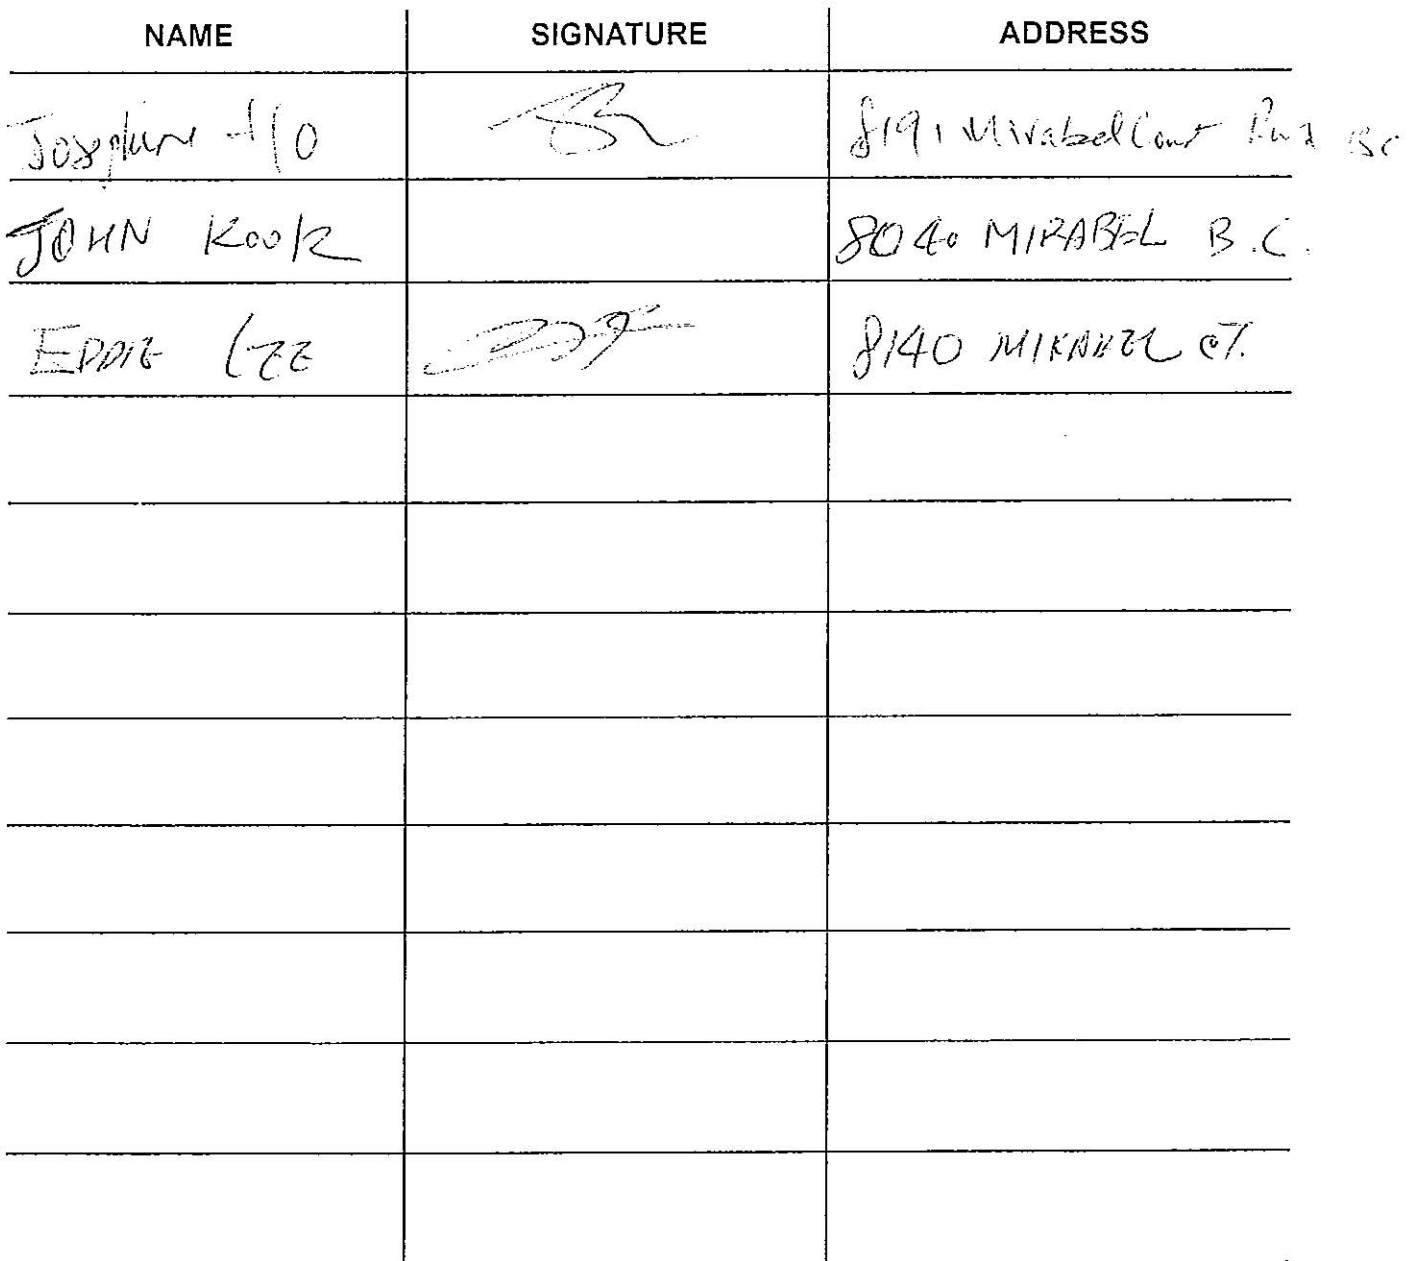 NAME SIGNATURE ADDRESS
Josephine Ho 8191 Mirabel Court Rmd BC
JOHN Kook 8040 MIRABEL B.C.
EDDIE LEE 8140 MIRABEL CT.